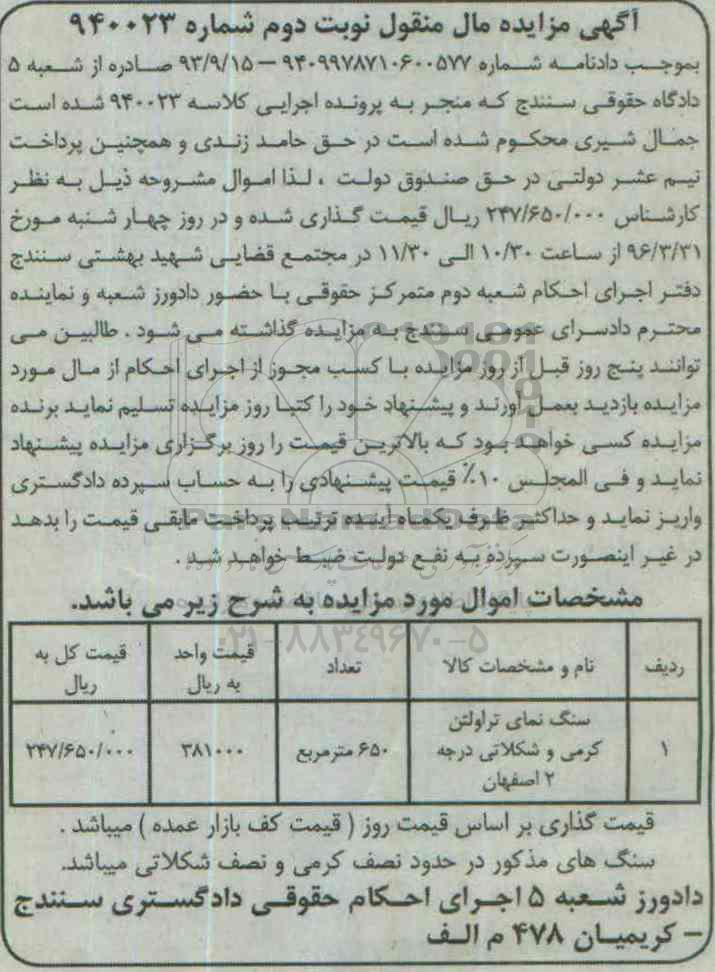 آگهی مزایده مال منقول نوبت دوم شماره ۹۴۰۰۲۳
بموجب دادنامه شماره ۹۴۰۹۹۷۸۷۱۰۶۰۰۵۷۷ – ۹۳/۹/۱۵ صادره از شعبه ۵
دادگاه حقوقی سنندج که منجر به پرونده اجرایی کلاسه ۹۴۰۰۲۳ شده است
جمال شیری محکوم شده است در حق حامد زندی و همچنین پرداخت
نیم عشر دولتی در حق صندوق دولت ، لذا اموال مشروحه ذیل به نظر
کارشناس ۲۴۷/۶۵۰/۰۰۰ ریال قیمت گذاری شده و در روز چهار شنبه مورخ
۹۶/۳/۳۱ از ساعت ۱۰/۳۰ الی ۱۱/۳۰ در مجتمع قضایی شهید بهشتی سنندج
دفتر اجرای احکام شعبه دوم متمرکز حقوقی با حضور دادورز شعبه و نماینده
محترم دادسرای عمومی سنندج به مزایده گذاشته می شود . طالبین می
توانند پنج روز قبل از روز مزایده با کسب مجوز از اجرای احکام از مال مورد
مزایده بازدید بعمل آورند و پیشنهاد خود را کتبا روز مزایده تسلیم نماید برنده
مزایده کسی خواهد بود که بالاترین قیمت را روز برگزاری مزایده پیشنهاد
نماید و فی المجلس ۱۰٪ قیمت پیشنهادی را به حساب سپرده دادگستری
واریز نماید و حداکثر ظرف یکماه آینده ترتیب پرداخت مابقی قیمت را بدهد
در غیر اینصورت سپرده به نفع دولت ضبط خواهد شد .
مشخصات اموال مورد مزایده به شرح زیر می باشد.
۰۲۱-۸۸۳۴۹۶۷۰-۵
ردیف نام و مشخصات کالا تعداد قیمت واحد به ریال قیمت کل به ریال
۱ سنگ نمای تراولتن کرمی و شکلاتی درجه ۲ اصفهان ۶۵۰ مترمربع ۳۸۱۰۰۰ ۲۴۷/۶۵۰/۰۰۰
قیمت گذاری بر اساس قیمت روز ( قیمت کف بازار عمده ) میباشد .
سنگ های مذکور در حدود نصف کرمی و نصف شکلاتی میباشد.
دادورز شعبه ۵ اجرای احکام حقوقی دادگستری سنندج
– کریمیان ۴۷۸ م الف